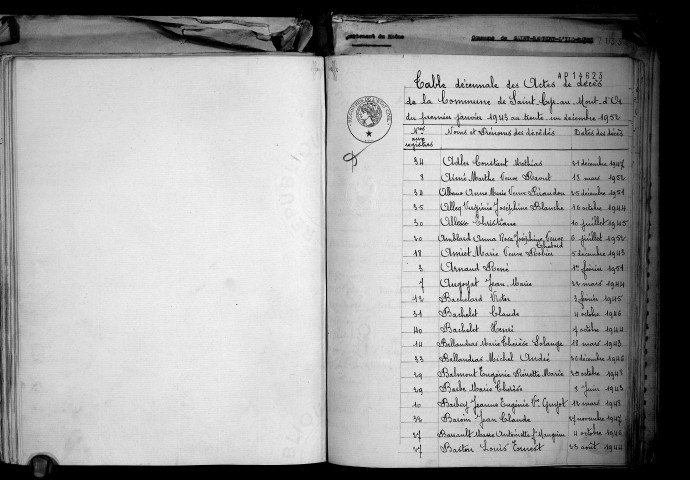 Département du Rhône
Commune de
AP 14623
Table décennale des Actes de décès
de la Commune de Saint Cyr au Mont d'Or
du premier janvier 1943 au trente un décembre 1952
Nos aux registres Noms et Prénoms des décédés Dates des décès
34 Adler Constant Mathias 21 décembre 1947
8 Aimé Marthe Veuve Ravut 13 mars 1952
Anne Marie Veuve Girandon 25 décembre 1951
35 Virginie Joséphine Blanche 18 octobre 1944
30 Christiane 10 juillet 1945
20 Amblard Anna Rose Joséphine Veuve 6 juillet 1952
18 Amiet Marie Veuve Robier 5 décembre 1943
3 Arnaud René 1er février 1951
7 Augoyat Jean Marie 22 mars 1944
12 Bachelard Victor 3 février 1945
31 Bachelet Claude 4 octobre 1946
40 Bachelet Henri 9 octobre 1944
14 Ballandras Marie Thérèse Solange 18 mars 1943
33 Ballandras Michel André décembre 1946
29 Balmont Eugénie Pierrette Marie octobre 1943
29 Barbe Marie Thérèse 8 Juin 1943
10 Jeanne Eugénie Vve Guyot 12 mars 1943
32 Baroin Jean Claude 27 novembre 1947
27 Marie Antoinette 4 octobre
27 Baston Louis Ernest 23 août 1944